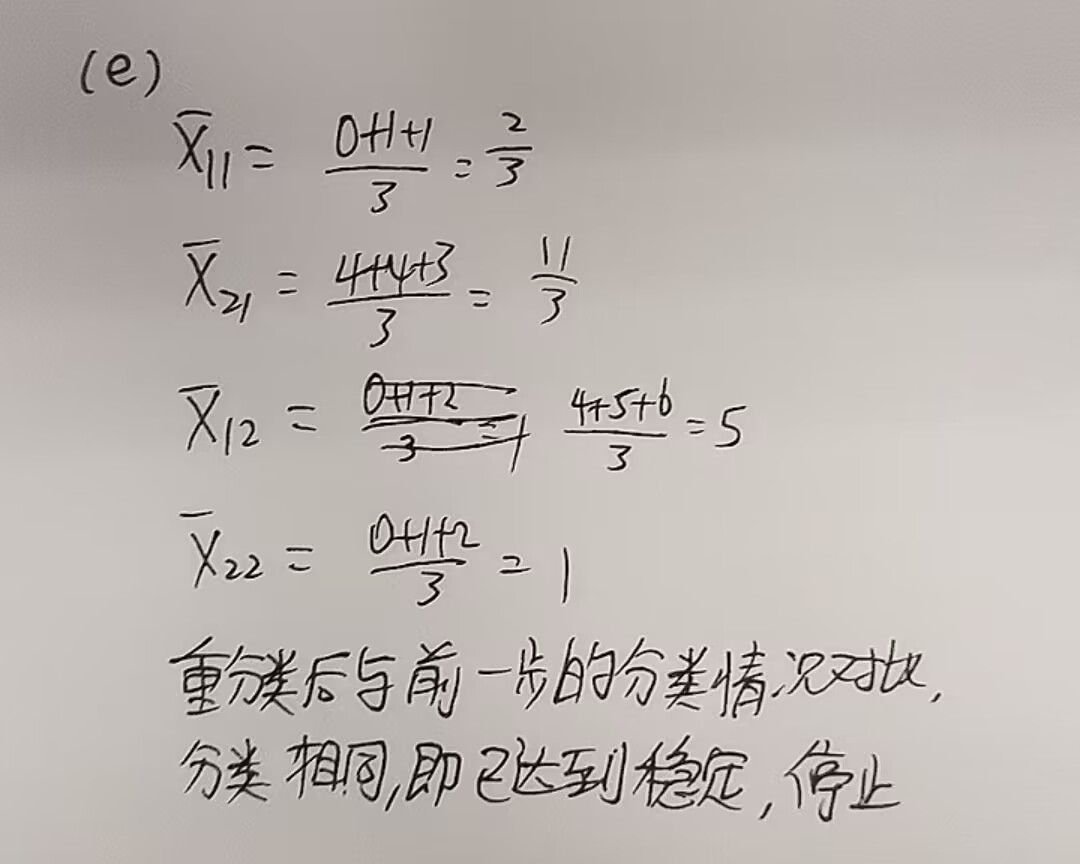 (e)
X̄₁₁ = (0+1+1)/3 = 2/3
X̄₂₁ = (4+4+3)/3 = 11/3
X̄₁₂ = (0+1+2)/3 = 1 (4+5+6)/3 = 5
X̄₂₂ = (0+1+2)/3 = 1
重分类后与前一步的分类情况对比,
分类相同,即已达到稳定,停止